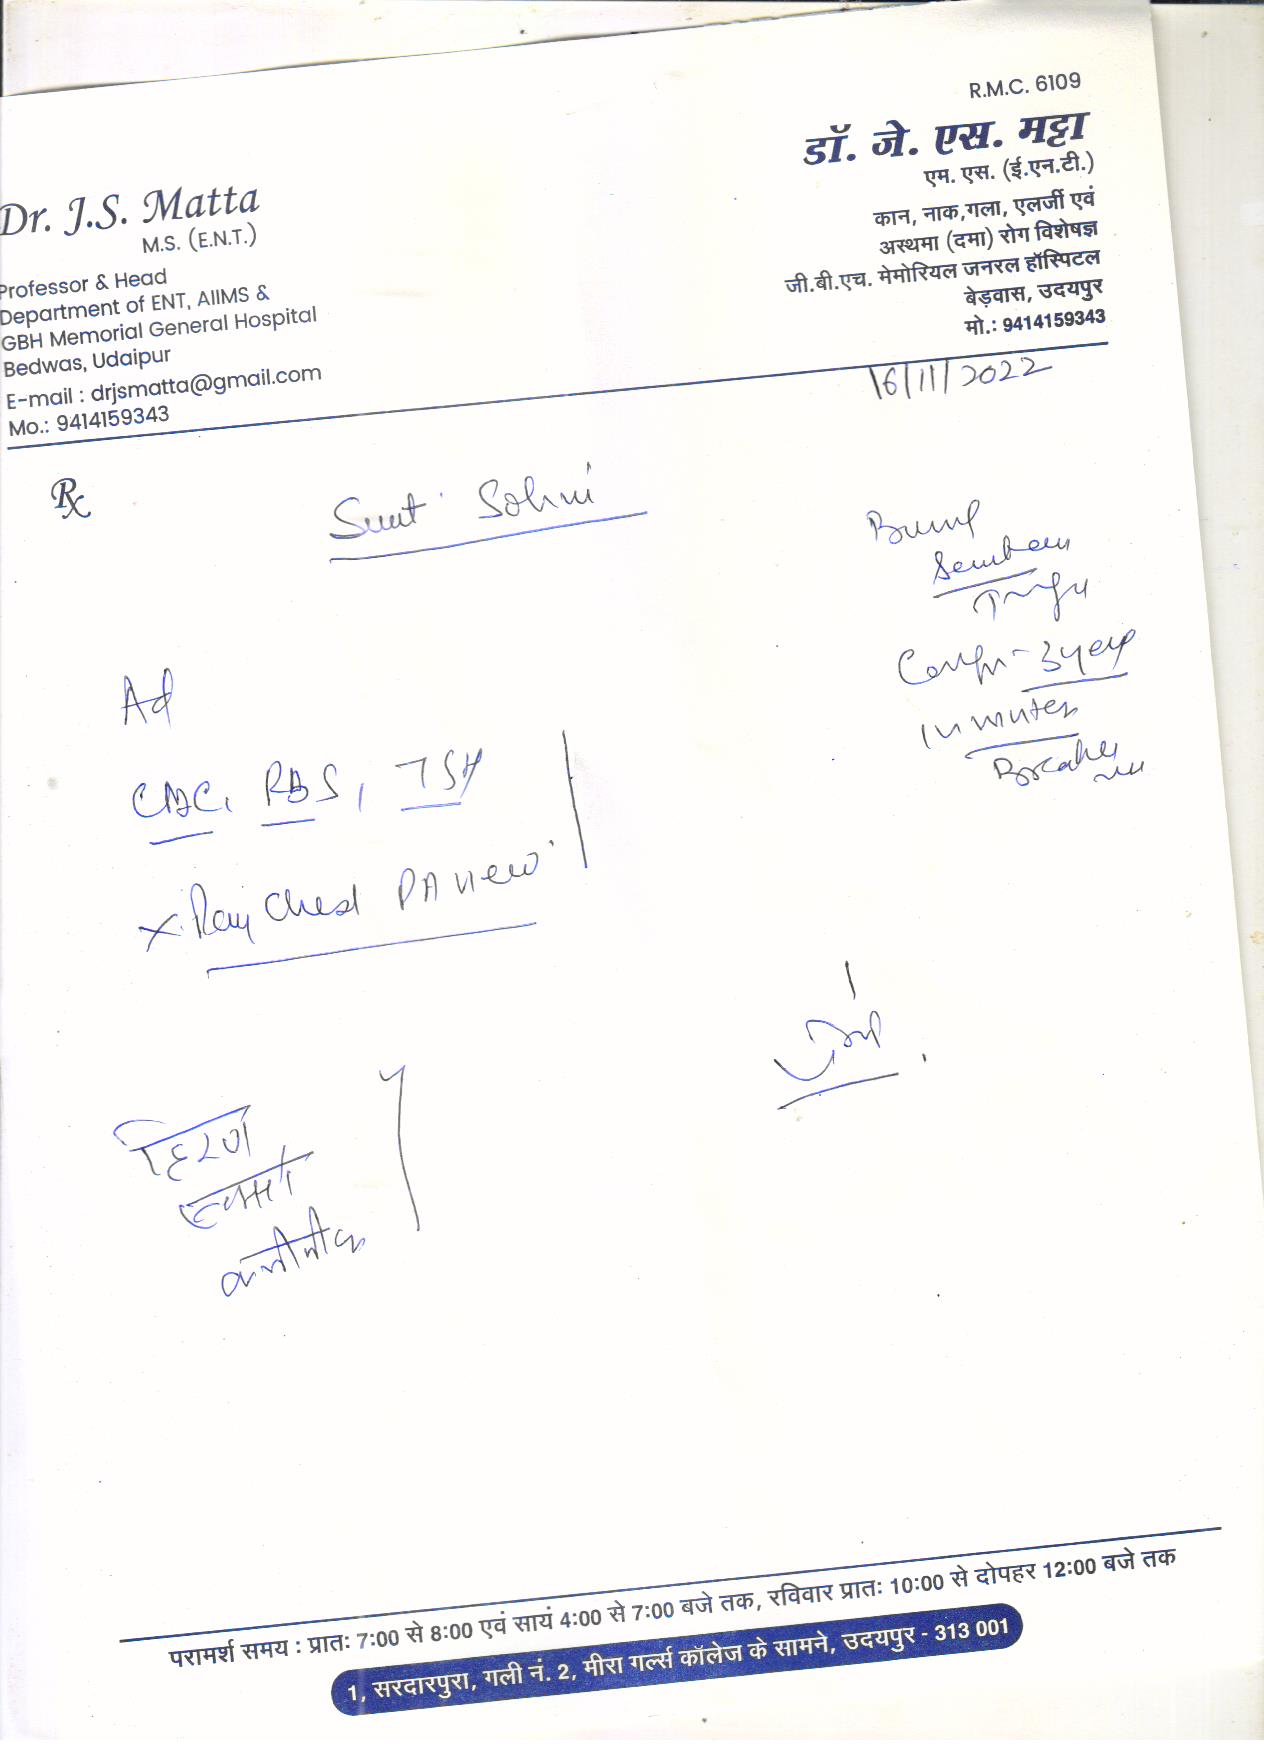 R.M.C. 6109
डॉ. जे. एस. मट्टा
एम. एस. (ई.एन.टी.)
कान, नाक,गला, एलर्जी एवं
अस्थमा (दमा) रोग विशेषज्ञ
जी.बी.एच. मेमोरियल जनरल हॉस्पिटल
बेड़वास, उदयपुर
मो.: 9414159343
Dr. J.S. Matta
M.S. (E.N.T.)
Professor & Head
Department of ENT, AIIMS &
GBH Memorial General Hospital
Bedwas, Udaipur
E-mail : drjsmatta@gmail.com
Mo.: 9414159343
16/11/2022
Rx
Smt. Sohni
3 year
in winter
Ad
CBC, RBS, TSH
X-Ray Chest PA view
हिरण
परामर्श समय : प्रातः 7:00 से 8:00 एवं सायं 4:00 से 7:00 बजे तक, रविवार प्रातः 10:00 से दोपहर 12:00 बजे तक
1, सरदारपुरा, गली नं. 2, मीरा गर्ल्स कॉलेज के सामने, उदयपुर - 313 001